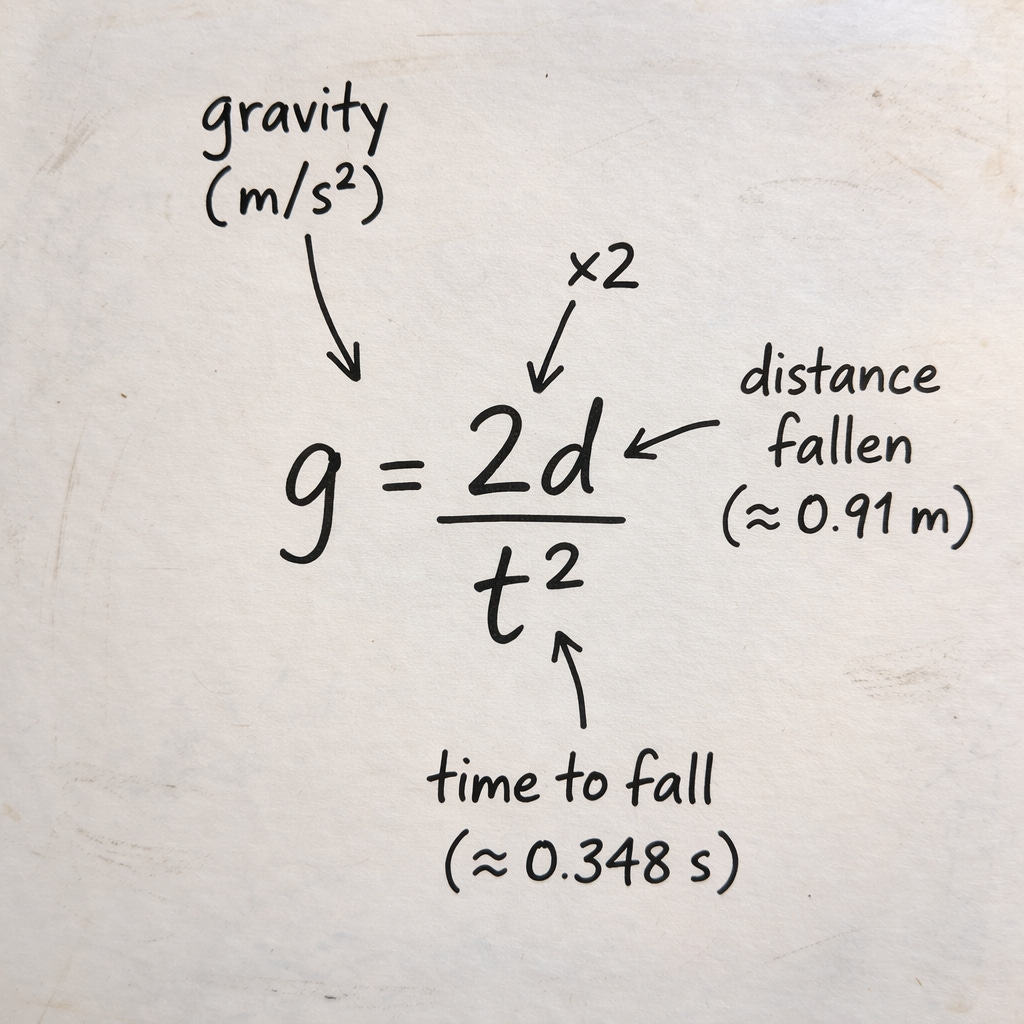 gravity
(m/s²)
×2
distance
fallen
(≈ 0.91 m)
g = 2d
t²
time to fall
(≈ 0.348 s)